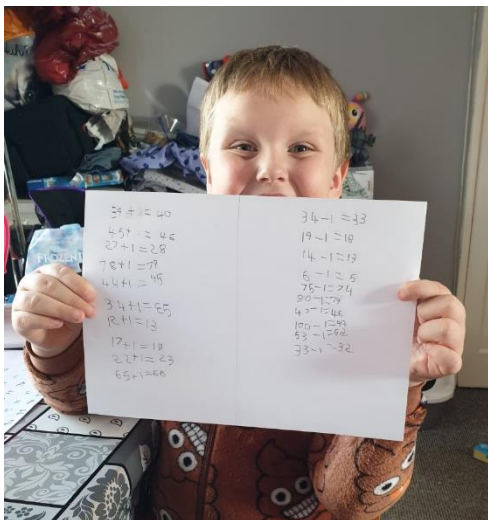 39+1=40
45+1=46
27+1=28
78+1=79
44+1=45
34+1=35
12+1=13
17+1=18
22+1=23
65+1=66
34-1=33
19-1=18
14-1=13
6-1=5
75-1=74
80-1=79
47-1=46
100-1=99
53-1=52
33-1=32
FROZEN